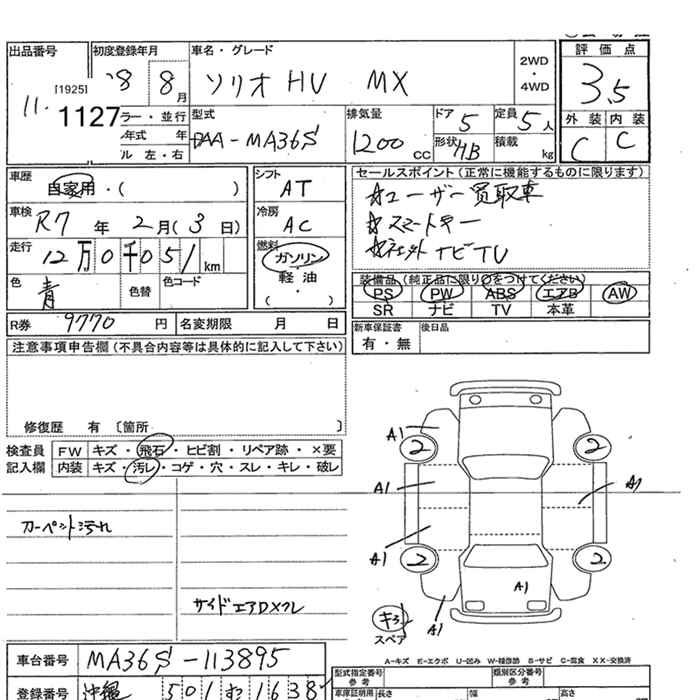 出品番号 初度登録年月 車名・グレード 評価点
[1925] '8 8月 ソリオ HV MX 2WD・4WD 3.5
11. 1127 ラー・並行 型式 排気量 ドア 5 定員 5人 外装 内装
年式 年 DAA-MA36S 1200cc 形状 HB 積載 kg C C
ル 左・右
車歴 自家用・( ) シフト AT セールスポイント(正常に機能するものに限ります)
車検 R7年 2月(3日) 冷房 AC ☆ユーザー買取車
☆スマートキー
走行 12万0千051km 燃料 ガソリン 軽油 ( ) ナビTV
色 青 色替 色コード 装備品(純正品に限り○をつけてください)
PS PW ABS エアB AW
SR ナビ TV 本革
R券 9770円 名変期限 月 日 新車保証書 有・無 後日品
注意事項申告欄(不具合内容等は具体的に記入して下さい)
修復歴 有 〔箇所 〕
検査員 記入欄
FW キズ・飛石・ヒビ割・リペア跡・×要
内装 キズ・汚レ・コゲ・穴・スレ・キレ・破レ
カーペット汚れ
サイドエアDメクレ
A1
2 2
A1 A1
A1
2 2
A1
A1
キろ
スペア
A-キズ E-エクボ U-凹み W-補修跡 S-サビ C-腐食 XX-交換済
車台番号 MA36S-113895 型式指定番号 参考 類別区分番号 参考
登録番号 沖縄 501 む 1638 車庫証明用 長さ 幅 高さ